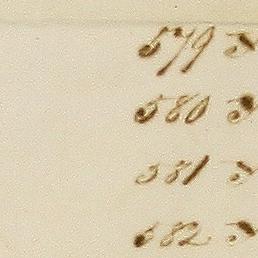 579
580
581
582